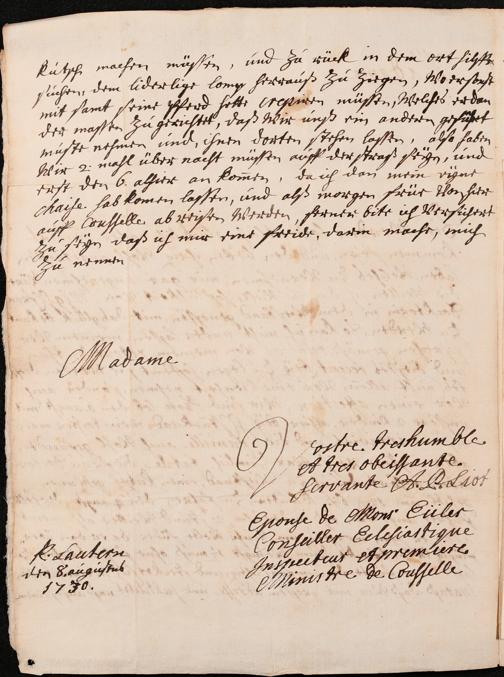 Kutsch machen müssen, und zu rück in dem ort hilff
suchen, dem liderlige loug herrauß zu ziegen, Wo erstoft
mit samt seine Pferd hette crepiren müssen, Welches er dan
der massen zugerichtet, daß Wir unß ein anderen geführt
müste nehmen und, ihnen dorten stehen lassen, also haben
Wir 2. mahl über nacht müssen auff der straß seÿn, und
erst den 6. alhier an komen, da ich dan mein eigne
chaise hab komen lassen, und alß morgen früe Von hier
auff Cousselle ab reißen Werden, ferner bite ich Versichert
zu seÿn daß ich mir eine freide, darin mache, mich
zu nennen
Madame
Vostre treshumble
et tres obeissante
servante A. Liot
Epouse de Mons Euler
Conseiller Eclesiastique
Inspecteur et premiere
Ministre de Cousselle
K. Lautern
den 8. augustus
1730.